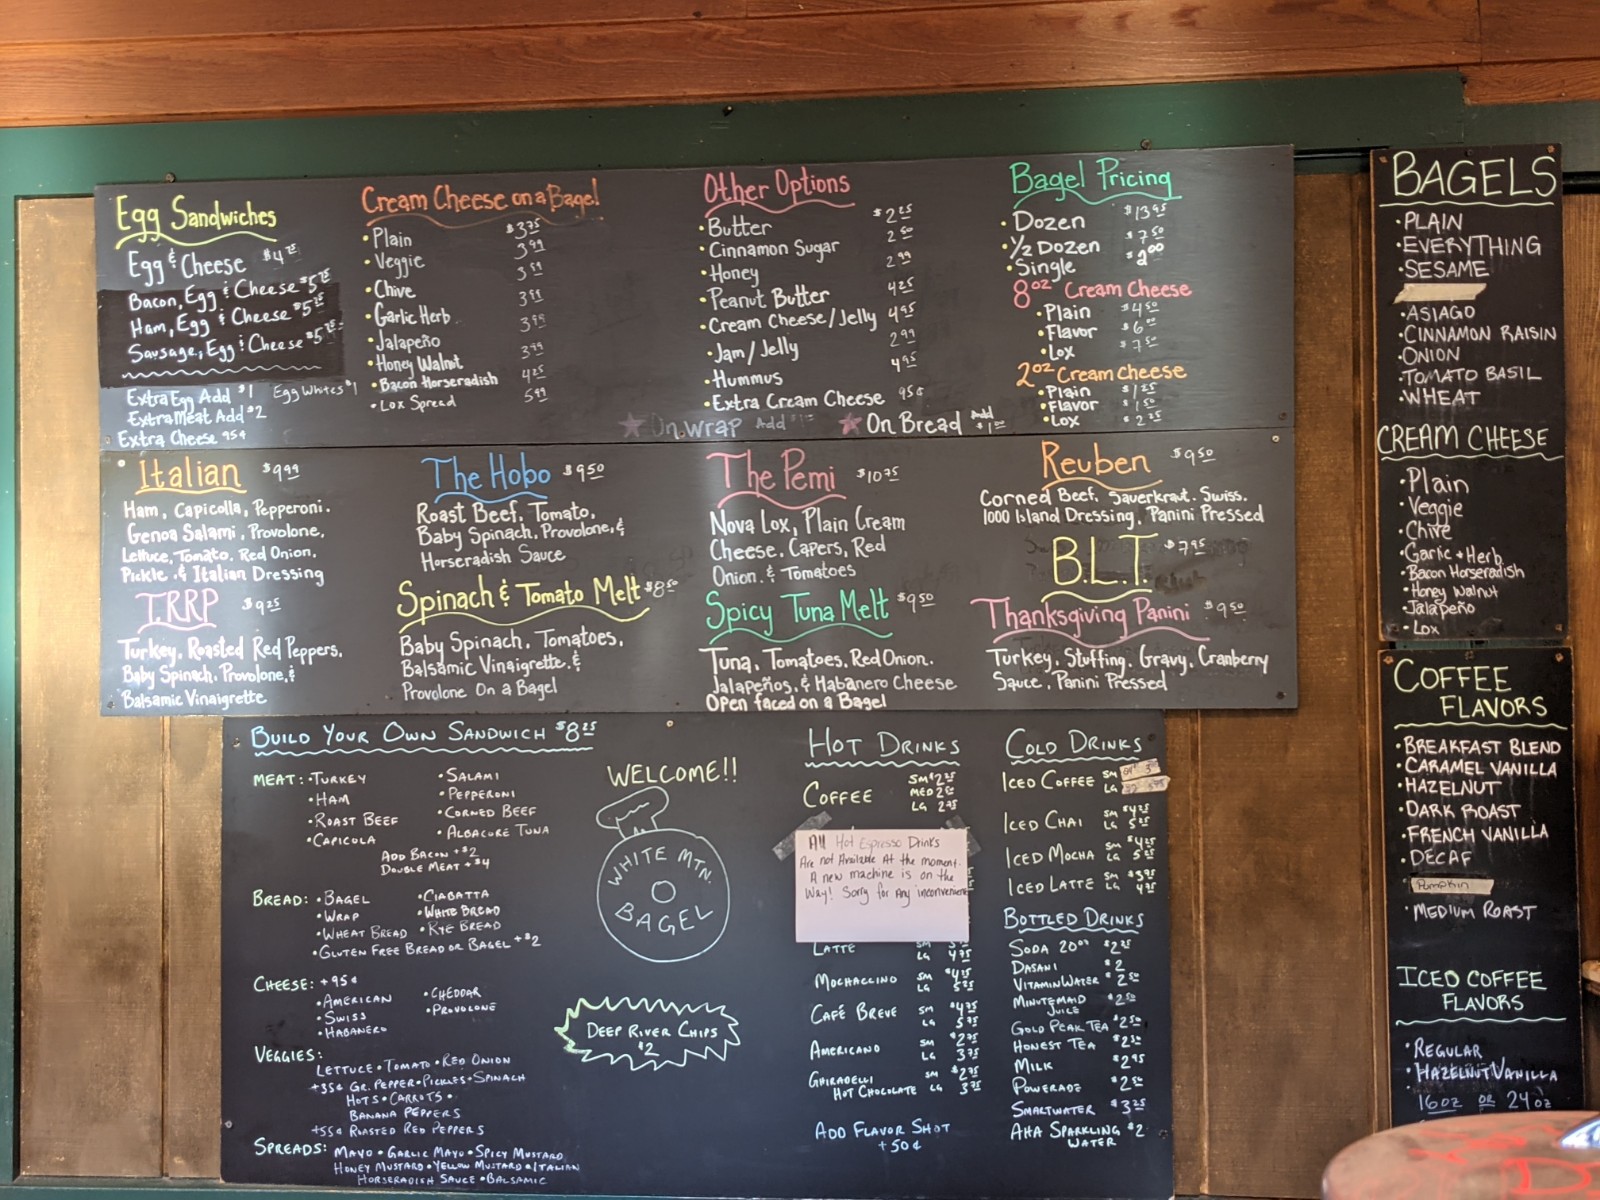 Egg Sandwiches
Egg & Cheese $4.75
Bacon, Egg & Cheese $5.75
Ham, Egg & Cheese $5.75
Sausage, Egg & Cheese $5.75
Extra Egg Add $1 Egg Whites $1
Extra Meat Add $2
Extra Cheese 95¢
Cream Cheese on a Bagel
• Plain $3.75
• Veggie 3.99
• Chive 3.99
• Garlic Herb 3.99
• Jalapeño 3.99
• Honey Walnut 3.99
• Bacon Horseradish 4.25
• Lox Spread 5.99
Other Options
• Butter $2.25
• Cinnamon Sugar 2.50
• Honey 2.99
• Peanut Butter 4.25
• Cream Cheese/Jelly 4.95
• Jam/Jelly 2.99
• Hummus 4.95
• Extra Cream Cheese 95¢
On Wrap Add
On Bread Add $1
Bagel Pricing
• Dozen $13.95
• 1/2 Dozen $7.50
• Single $2.00
8oz Cream Cheese
• Plain $4.50
• Flavor $6.00
• Lox $7.50
2oz Cream Cheese
• Plain $1.25
• Flavor $1.50
• Lox $2.25
Italian $9.99
Ham, Capicolla, Pepperoni.
Genoa Salami, Provolone,
Lettuce, Tomato. Red Onion.
Pickle & Italian Dressing
T.R.R.P $9.25
Turkey, Roasted Red Peppers,
Baby Spinach, Provolone, &
Balsamic Vinaigrette
The Hobo $9.50
Roast Beef, Tomato,
Baby Spinach, Provolone, &
Horseradish Sauce
Spinach & Tomato Melt $8.50
Baby Spinach, Tomatoes,
Balsamic Vinaigrette, &
Provolone On a Bagel
The Pemi $10.75
Nova Lox, Plain Cream
Cheese, Capers, Red
Onion, & Tomatoes
Spicy Tuna Melt $9.50
Tuna, Tomatoes, Red Onion,
Jalapeños, & Habanero Cheese
Open faced on a Bagel
Reuben $9.50
Corned Beef, Sauerkraut, Swiss.
1000 Island Dressing, Panini Pressed
B.L.T. $7.95
Thanksgiving Panini $9.50
Turkey, Stuffing, Gravy, Cranberry
Sauce, Panini Pressed
BUILD YOUR OWN SANDWICH $8.25
MEAT: • TURKEY • SALAMI
• HAM • PEPPERONI
• ROAST BEEF • CORNED BEEF
• CAPICOLA • ALBACORE TUNA
ADD BACON +$2
DOUBLE MEAT +$4
BREAD: • BAGEL • CIABATTA
• WRAP • WHITE BREAD
• WHEAT BREAD • RYE BREAD
• GLUTEN FREE BREAD OR BAGEL +$2
CHEESE: +95¢
• AMERICAN • CHEDDAR
• SWISS • PROVOLONE
• HABANERO
VEGGIES:
LETTUCE • TOMATO • RED ONION
+35¢ GR. PEPPER • PICKLES • SPINACH
HOTS • CARROTS •
BANANA PEPPERS
+55¢ ROASTED RED PEPPERS
SPREADS: MAYO • GARLIC MAYO • SPICY MUSTARD
HONEY MUSTARD • YELLOW MUSTARD • ITALIAN
HORSERADISH SAUCE • BALSAMIC
WELCOME!!
WHITE MTN.
BAGEL
DEEP RIVER CHIPS
$2
HOT DRINKS
COFFEE SM $2.25
MED 2.50
LG 2.75
All Hot Espresso Drinks
Are not Available At the moment.
A new machine is on the
Way! Sorry for Any inconvenience
LATTE SM
LG 4.75
MOCHACCINO SM $4.25
LG 5.25
CAFÉ BREVE SM $4.75
LG 5.75
AMERICANO SM $2.75
LG 3.75
GHIRADELLI SM $2.75
HOT CHOCOLATE LG 3.75
ADD FLAVOR SHOT
+50¢
COLD DRINKS
ICED COFFEE SM
LG
ICED CHAI SM $4.25
LG 5.25
ICED MOCHA SM $4.25
LG 5.25
ICED LATTE SM $3.95
LG 4.95
BOTTLED DRINKS
SODA 20oz $2.25
DASANI $2
VITAMINWATER $2.50
MINUTEMAID $2.50
JUICE
GOLD PEAK TEA $2.50
HONEST TEA $2.50
MILK $2.95
POWERADE $2.50
SMARTWATER $3.25
AHA SPARKLING $2
WATER
BAGELS
• PLAIN
• EVERYTHING
• SESAME
• ASIAGO
• CINNAMON RAISIN
• ONION
• TOMATO BASIL
• WHEAT
CREAM CHEESE
• Plain
• Veggie
• Chive
• Garlic + Herb
• Bacon Horseradish
• Honey Walnut
• Jalapeño
• Lox
COFFEE
FLAVORS
• BREAKFAST BLEND
• CARAMEL VANILLA
• HAZELNUT
• DARK ROAST
• FRENCH VANILLA
• DECAF
Pumpkin
• MEDIUM ROAST
ICED COFFEE
FLAVORS
• REGULAR
• HAZELNUT VANILLA
16oz OR 24oz